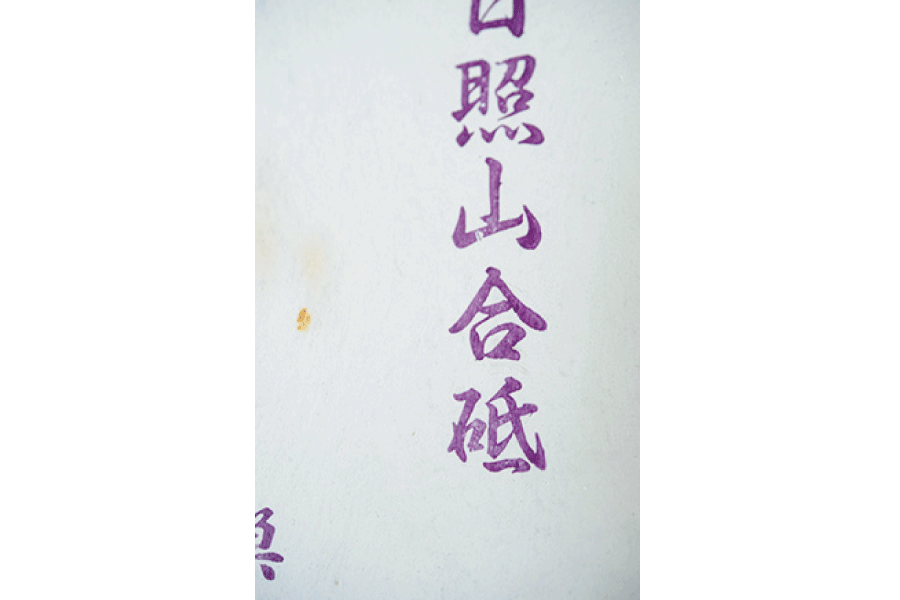 日照山合砥